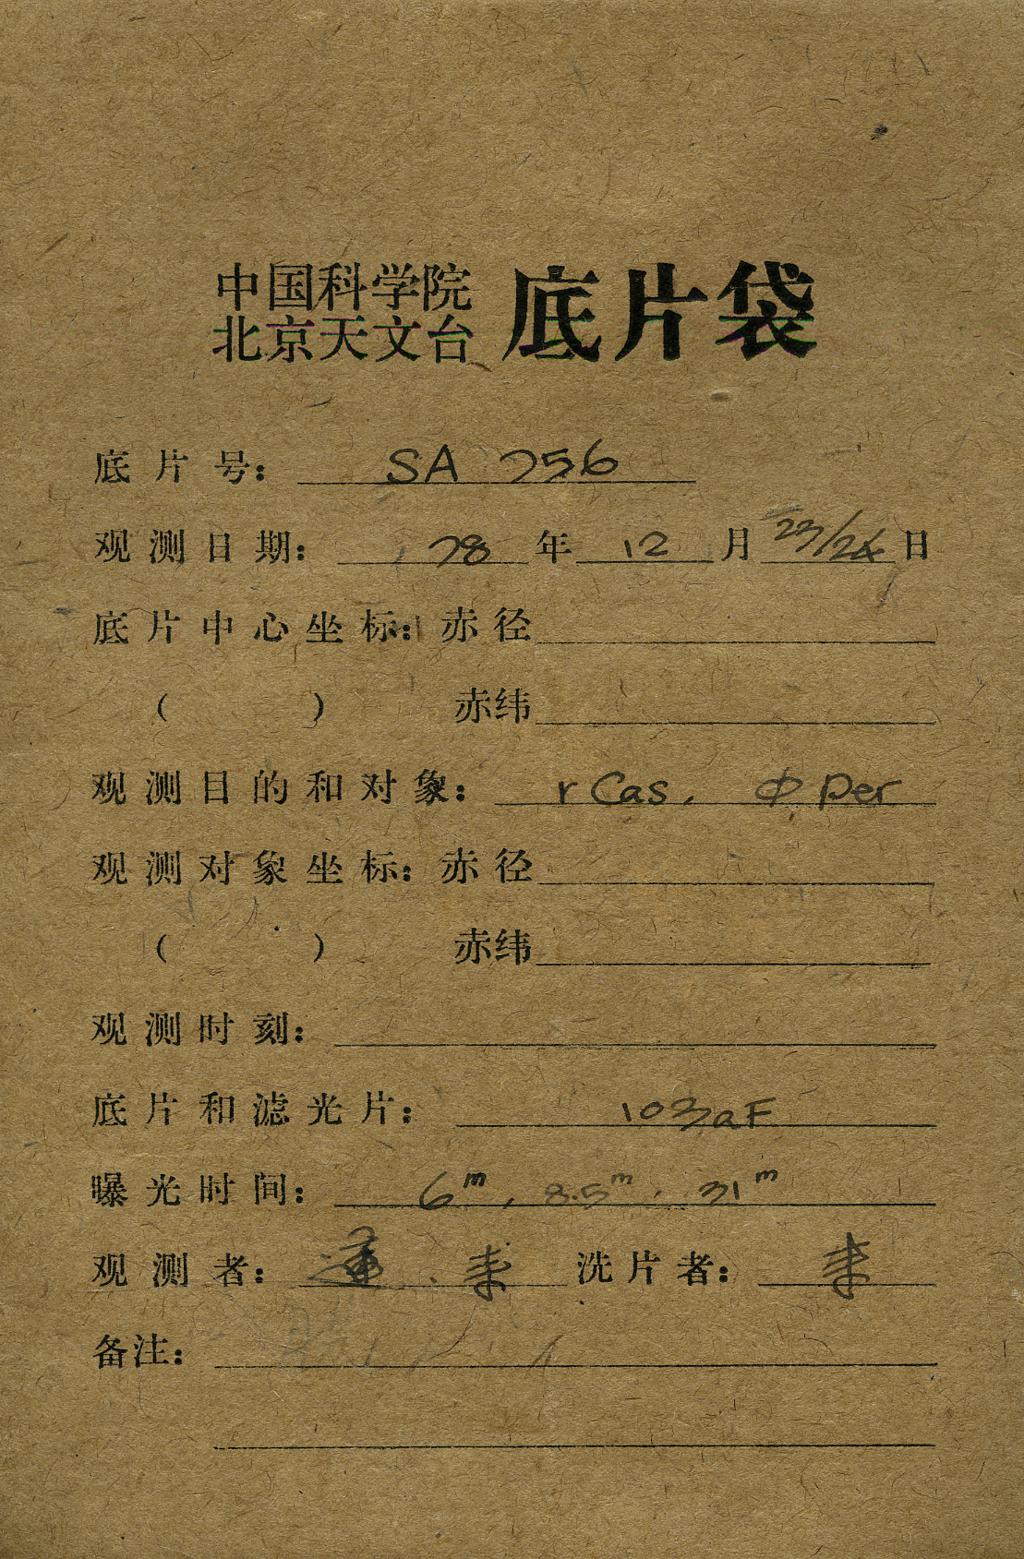 中国科学院
北京天文台 底片袋
底片号： SA 756
观测日期： 78 年 12 月 23/24 日
底片中心坐标：赤径
（ ） 赤纬
观测目的和对象： r Cas, Φ per
观测对象坐标：赤径
（ ） 赤纬
观测时刻：
底片和滤光片： 103aF
曝光时间： 6m, 8.5m, 31m
观测者： 洗片者：
备注：